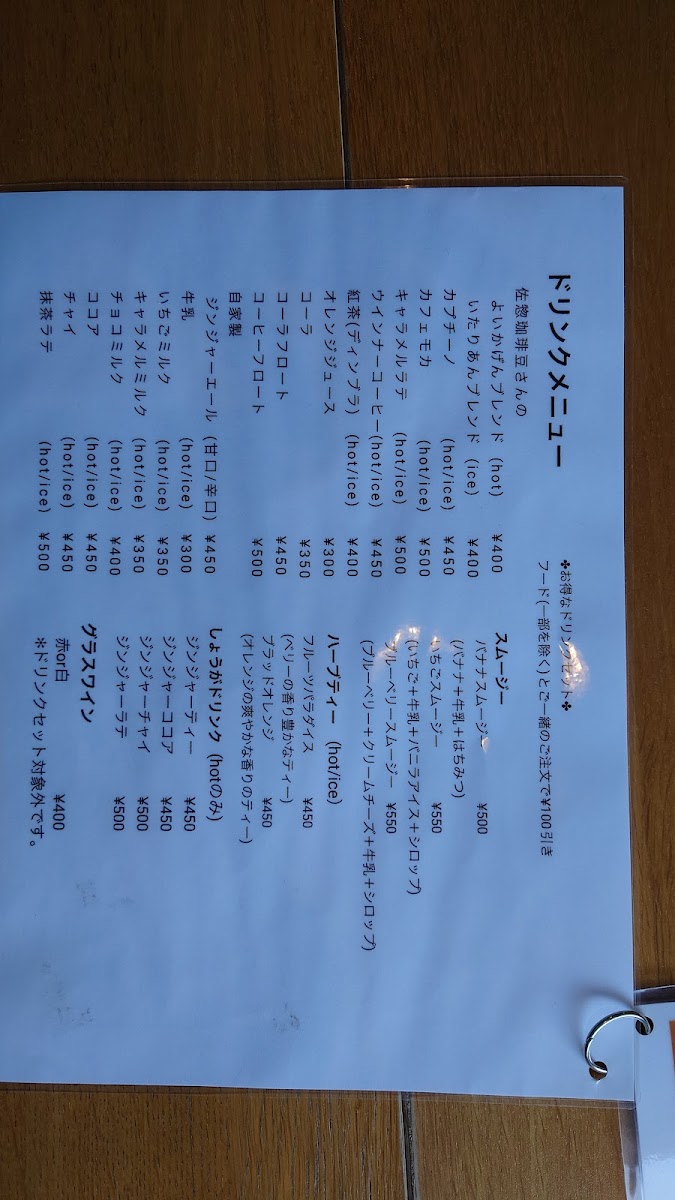 ドリンクメニュー
❖お得なドリンクセット❖
フード(一部を除く)とご一緒のご注文で¥100引き
佐惣珈琲豆さんの
よいかげんブレンド (hot) ¥400
いたりあんブレンド (ice) ¥400
カプチーノ (hot/ice) ¥450
カフェモカ (hot/ice) ¥500
キャラメルラテ (hot/ice) ¥500
ウインナーコーヒー(hot/ice) ¥450
紅茶(ディンブラ) (hot/ice) ¥400
オレンジジュース ¥300
コーラ ¥350
コーラフロート ¥450
コーヒーフロート ¥500
自家製
ジンジャーエール (甘口/辛口) ¥450
牛乳 (hot/ice) ¥300
いちごミルク (hot/ice) ¥350
キャラメルミルク (hot/ice) ¥350
チョコミルク (hot/ice) ¥400
ココア (hot/ice) ¥450
チャイ (hot/ice) ¥450
抹茶ラテ (hot/ice) ¥500
スムージー
バナナスムージー ¥500
(バナナ+牛乳+はちみつ)
いちごスムージー ¥550
(いちご+牛乳+バニラアイス+シロップ)
ブルーベリースムージー ¥550
(ブルーベリー+クリームチーズ+牛乳+シロップ)
ハーブティー (hot/ice)
フルーツパラダイス ¥450
(ベリーの香り豊かなティー)
ブラッドオレンジ ¥450
(オレンジの爽やかな香りのティー)
しょうがドリンク (hotのみ)
ジンジャーティー ¥450
ジンジャーココア ¥450
ジンジャーチャイ ¥500
ジンジャーラテ ¥500
グラスワイン
赤or白 ¥400
※ドリンクセット対象外です。